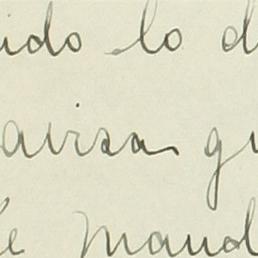 ido lo d
aviza qu
le mand